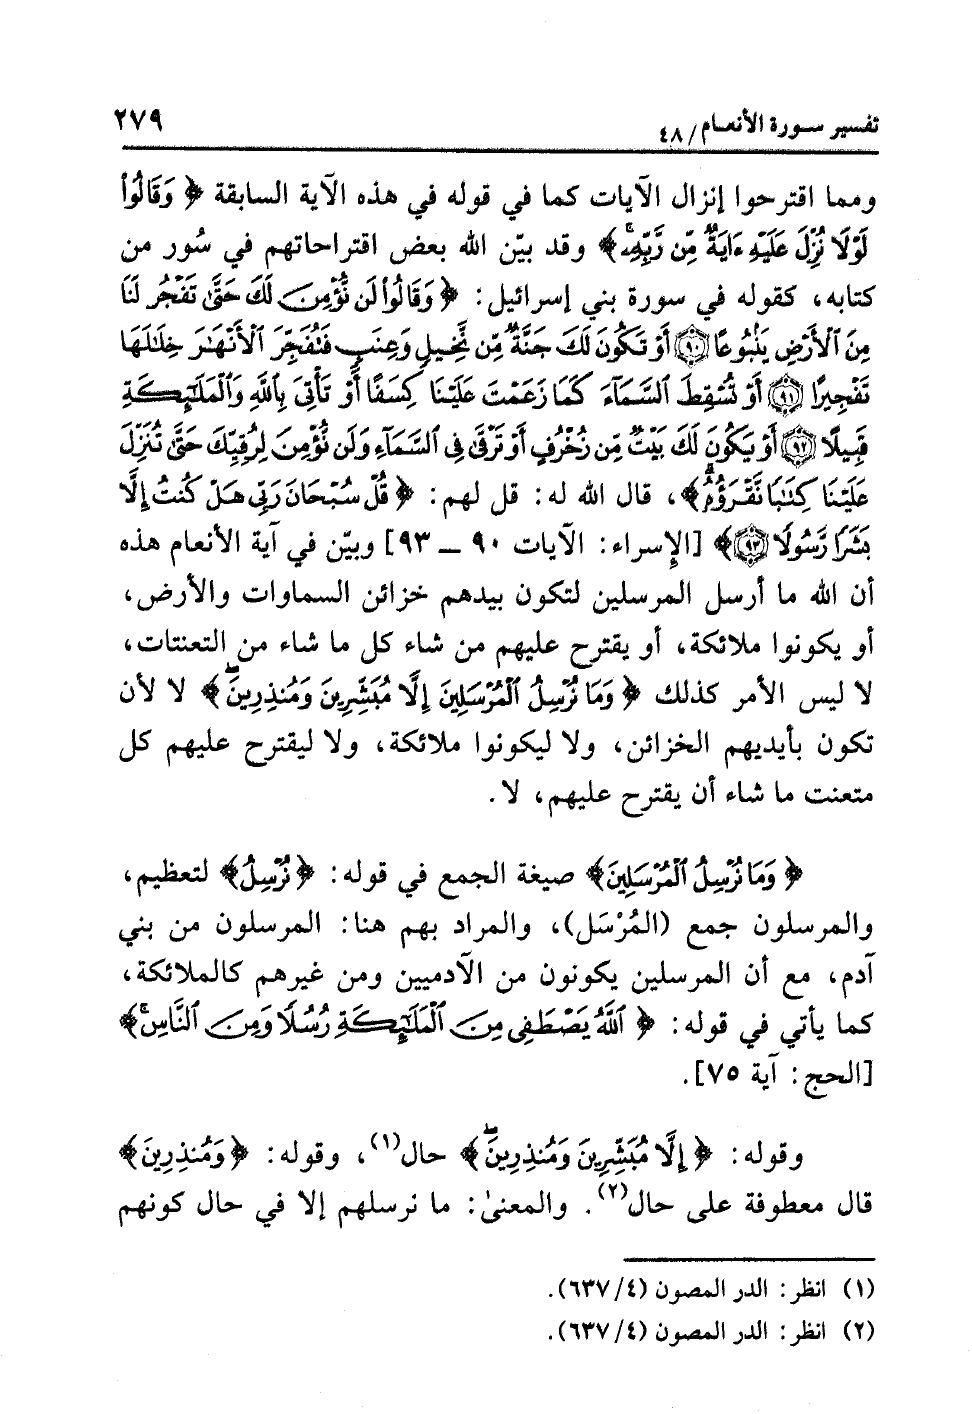 تفسير سورة الأنعام/ ٤٨ ٢٧٩
ومما اقترحوا إنزال الآيات كما في قوله في هذه الآية السابقة ﴿ وَقَالُوا۟
لَوْلَا نُزِّلَ عَلَيْهِ ءَايَةٌ مِّن رَّبِّهِۦۚ ﴾ وقد بيّن الله بعض اقتراحاتهم في سُور من
كتابه، كقوله في سورة بني إسرائيل: ﴿ وَقَالُوا۟ لَن نُّؤْمِنَ لَكَ حَتَّىٰ تَفْجُرَ لَنَا
مِنَ ٱلْأَرْضِ يَنۢبُوعًا ٩٠ أَوْ تَكُونَ لَكَ جَنَّةٌ مِّن نَّخِيلٍ وَعِنَبٍ فَتُفَجِّرَ ٱلْأَنْهَٰرَ خِلَٰلَهَا
تَفْجِيرًا ٩١ أَوْ تُسْقِطَ ٱلسَّمَآءَ كَمَا زَعَمْتَ عَلَيْنَا كِسَفًا أَوْ تَأْتِىَ بِٱللَّهِ وَٱلْمَلَٰٓئِكَةِ
قَبِيلًا ٩٢ أَوْ يَكُونَ لَكَ بَيْتٌ مِّن زُخْرُفٍ أَوْ تَرْقَىٰ فِى ٱلسَّمَآءِ وَلَن نُّؤْمِنَ لِرُقِيِّكَ حَتَّىٰ تُنَزِّلَ
عَلَيْنَا كِتَٰبًا نَّقْرَؤُهُۥۗ ﴾، قال الله له: قل لهم: ﴿ قُلْ سُبْحَانَ رَبِّى هَلْ كُنتُ إِلَّا
بَشَرًا رَّسُولًا ٩٣ ﴾ [الإسراء: الآيات ٩٠ ــ ٩٣] وبيّن في آية الأنعام هذه
أن الله ما أرسل المرسلين لتكون بيدهم خزائن السماوات والأرض،
أو يكونوا ملائكة، أو يقترح عليهم من شاء كل ما شاء من التعنتات،
لا ليس الأمر كذلك ﴿ وَمَا نُرْسِلُ ٱلْمُرْسَلِينَ إِلَّا مُبَشِّرِينَ وَمُنذِرِينَۖ ﴾ لا لأن
تكون بأيديهم الخزائن، ولا ليكونوا ملائكة، ولا ليقترح عليهم كل
متعنت ما شاء أن يقترح عليهم، لا.
﴿ وَمَا نُرْسِلُ ٱلْمُرْسَلِينَ ﴾ صيغة الجمع في قوله: ﴿ نُرْسِلُ ﴾ لتعظيم،
والمرسلون جمع (المُرْسَل)، والمراد بهم هنا: المرسلون من بني
آدم، مع أن المرسلين يكونون من الآدميين ومن غيرهم كالملائكة،
كما يأتي في قوله: ﴿ ٱللَّهُ يَصْطَفِى مِنَ ٱلْمَلَٰٓئِكَةِ رُسُلًا وَمِنَ ٱلنَّاسِۚ ﴾
[الحج: آية ٧٥].
وقوله: ﴿ إِلَّا مُبَشِّرِينَ وَمُنذِرِينَۖ ﴾ حال(١)، وقوله: ﴿ وَمُنذِرِينَ ﴾
قال معطوفة على حال(٢). والمعنىٰ: ما نرسلهم إلا في حال كونهم
(١) انظر: الدر المصون (٤/ ٦٣٧).
(٢) انظر: الدر المصون (٤/ ٦٣٧).